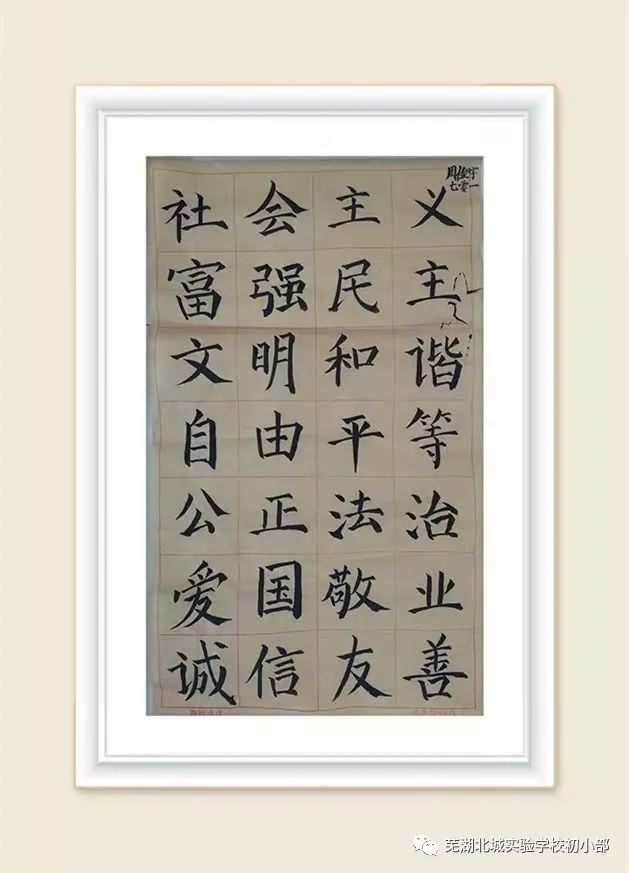 周俊宇
七零一
社会主义
富强民主
文明和谐
自由平等
公正法治
爱国敬业
诚信友善
芜湖北城实验学校初小部